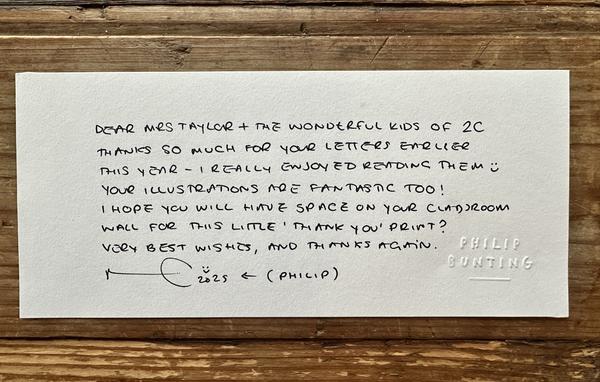 DEAR MRS TAYLOR + THE WONDERFUL KIDS OF 2C
THANKS SO MUCH FOR YOUR LETTERS EARLIER
THIS YEAR - I REALLY ENJOYED READING THEM
YOUR ILLUSTRATIONS ARE FANTASTIC TOO!
I HOPE YOU WILL HAVE SPACE ON YOUR CLASSROOM
WALL FOR THIS LITTLE 'THANK YOU' PRINT?
VERY BEST WISHES, AND THANKS AGAIN.
2025 ← (PHILIP)
PHILIP
BUNTING